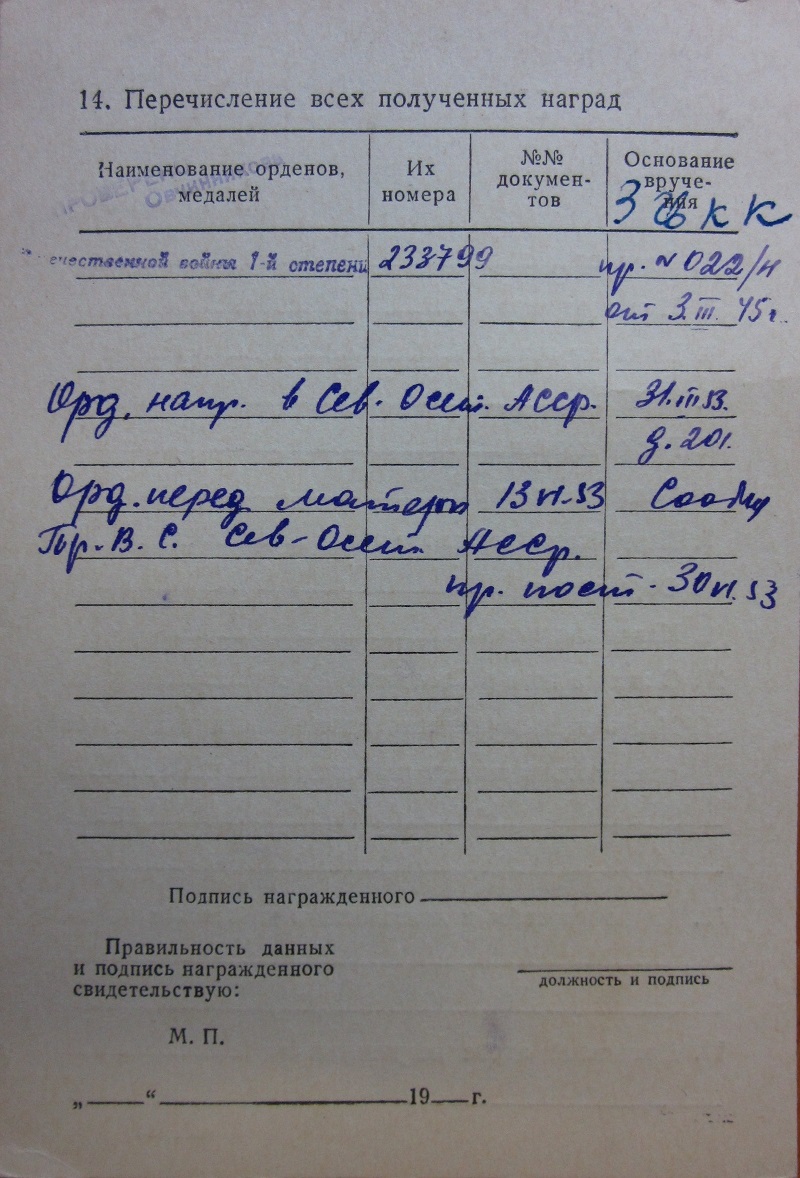 14. Перечисление всех полученных наград
Наименование орденов, медалей
Их номера
№№ документов
Основание вручения
Овчинникова
3 ЦК К К
ечественной войны 1-й степени 233799 пр. N 022/н
от 3.III.45г.
Орд. напр. в Сев. Осет. АССР. 31.III.53.
д. 201.
Орд. перед матери 13 VI.53 Сообщ
Пр. В. С. Сев-Осет. АССР.
пр. пост. 30 VI.53
Подпись награжденного
Правильность данных
и подпись награжденного
свидетельствую:
должность и подпись
М. П.
„ “ 19 г.